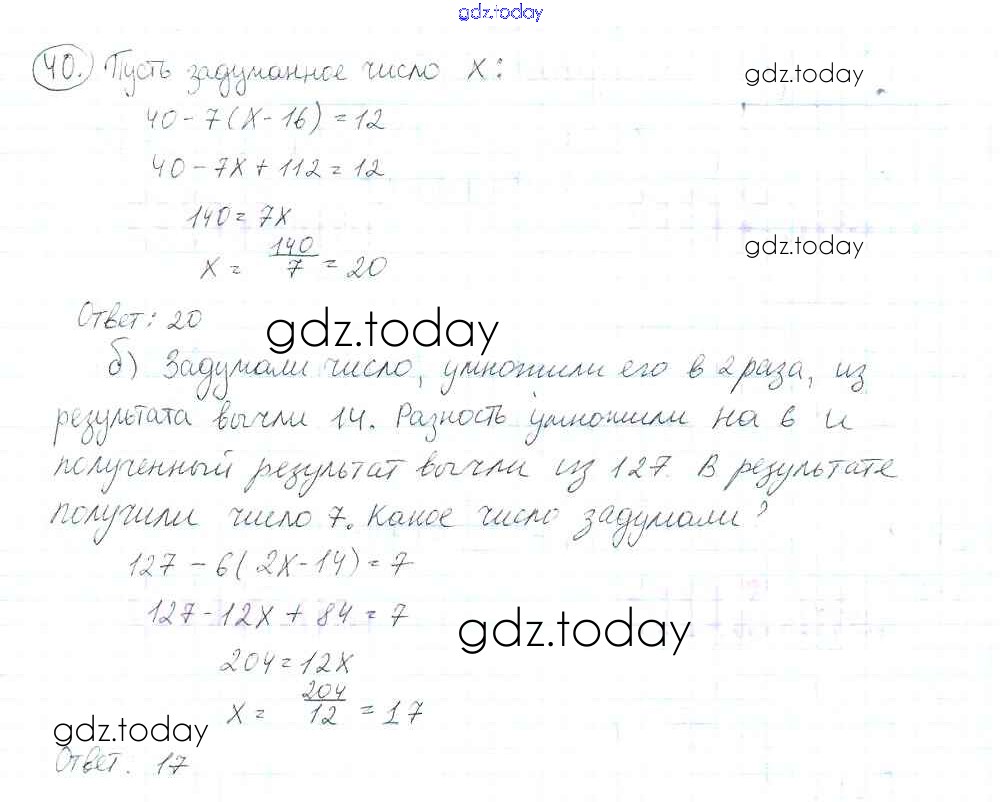 gdz.today
40. Пусть задуманное число x:
gdz.today
40 - 7(x - 16) = 12
40 - 7x + 112 = 12
140 = 7x
gdz.today
x = 140/7 = 20
Ответ: 20
gdz.today
б) Задумали число, умножили его в 2 раза, из
результата вычли 14. Разность умножили на 6 и
полученный результат вычли из 127. В результате
получили число 7. Какое число задумали?
127 - 6(2x - 14) = 7
127 - 12x + 84 = 7
gdz.today
204 = 12x
x = 204/12 = 17
gdz.today
Ответ. 17